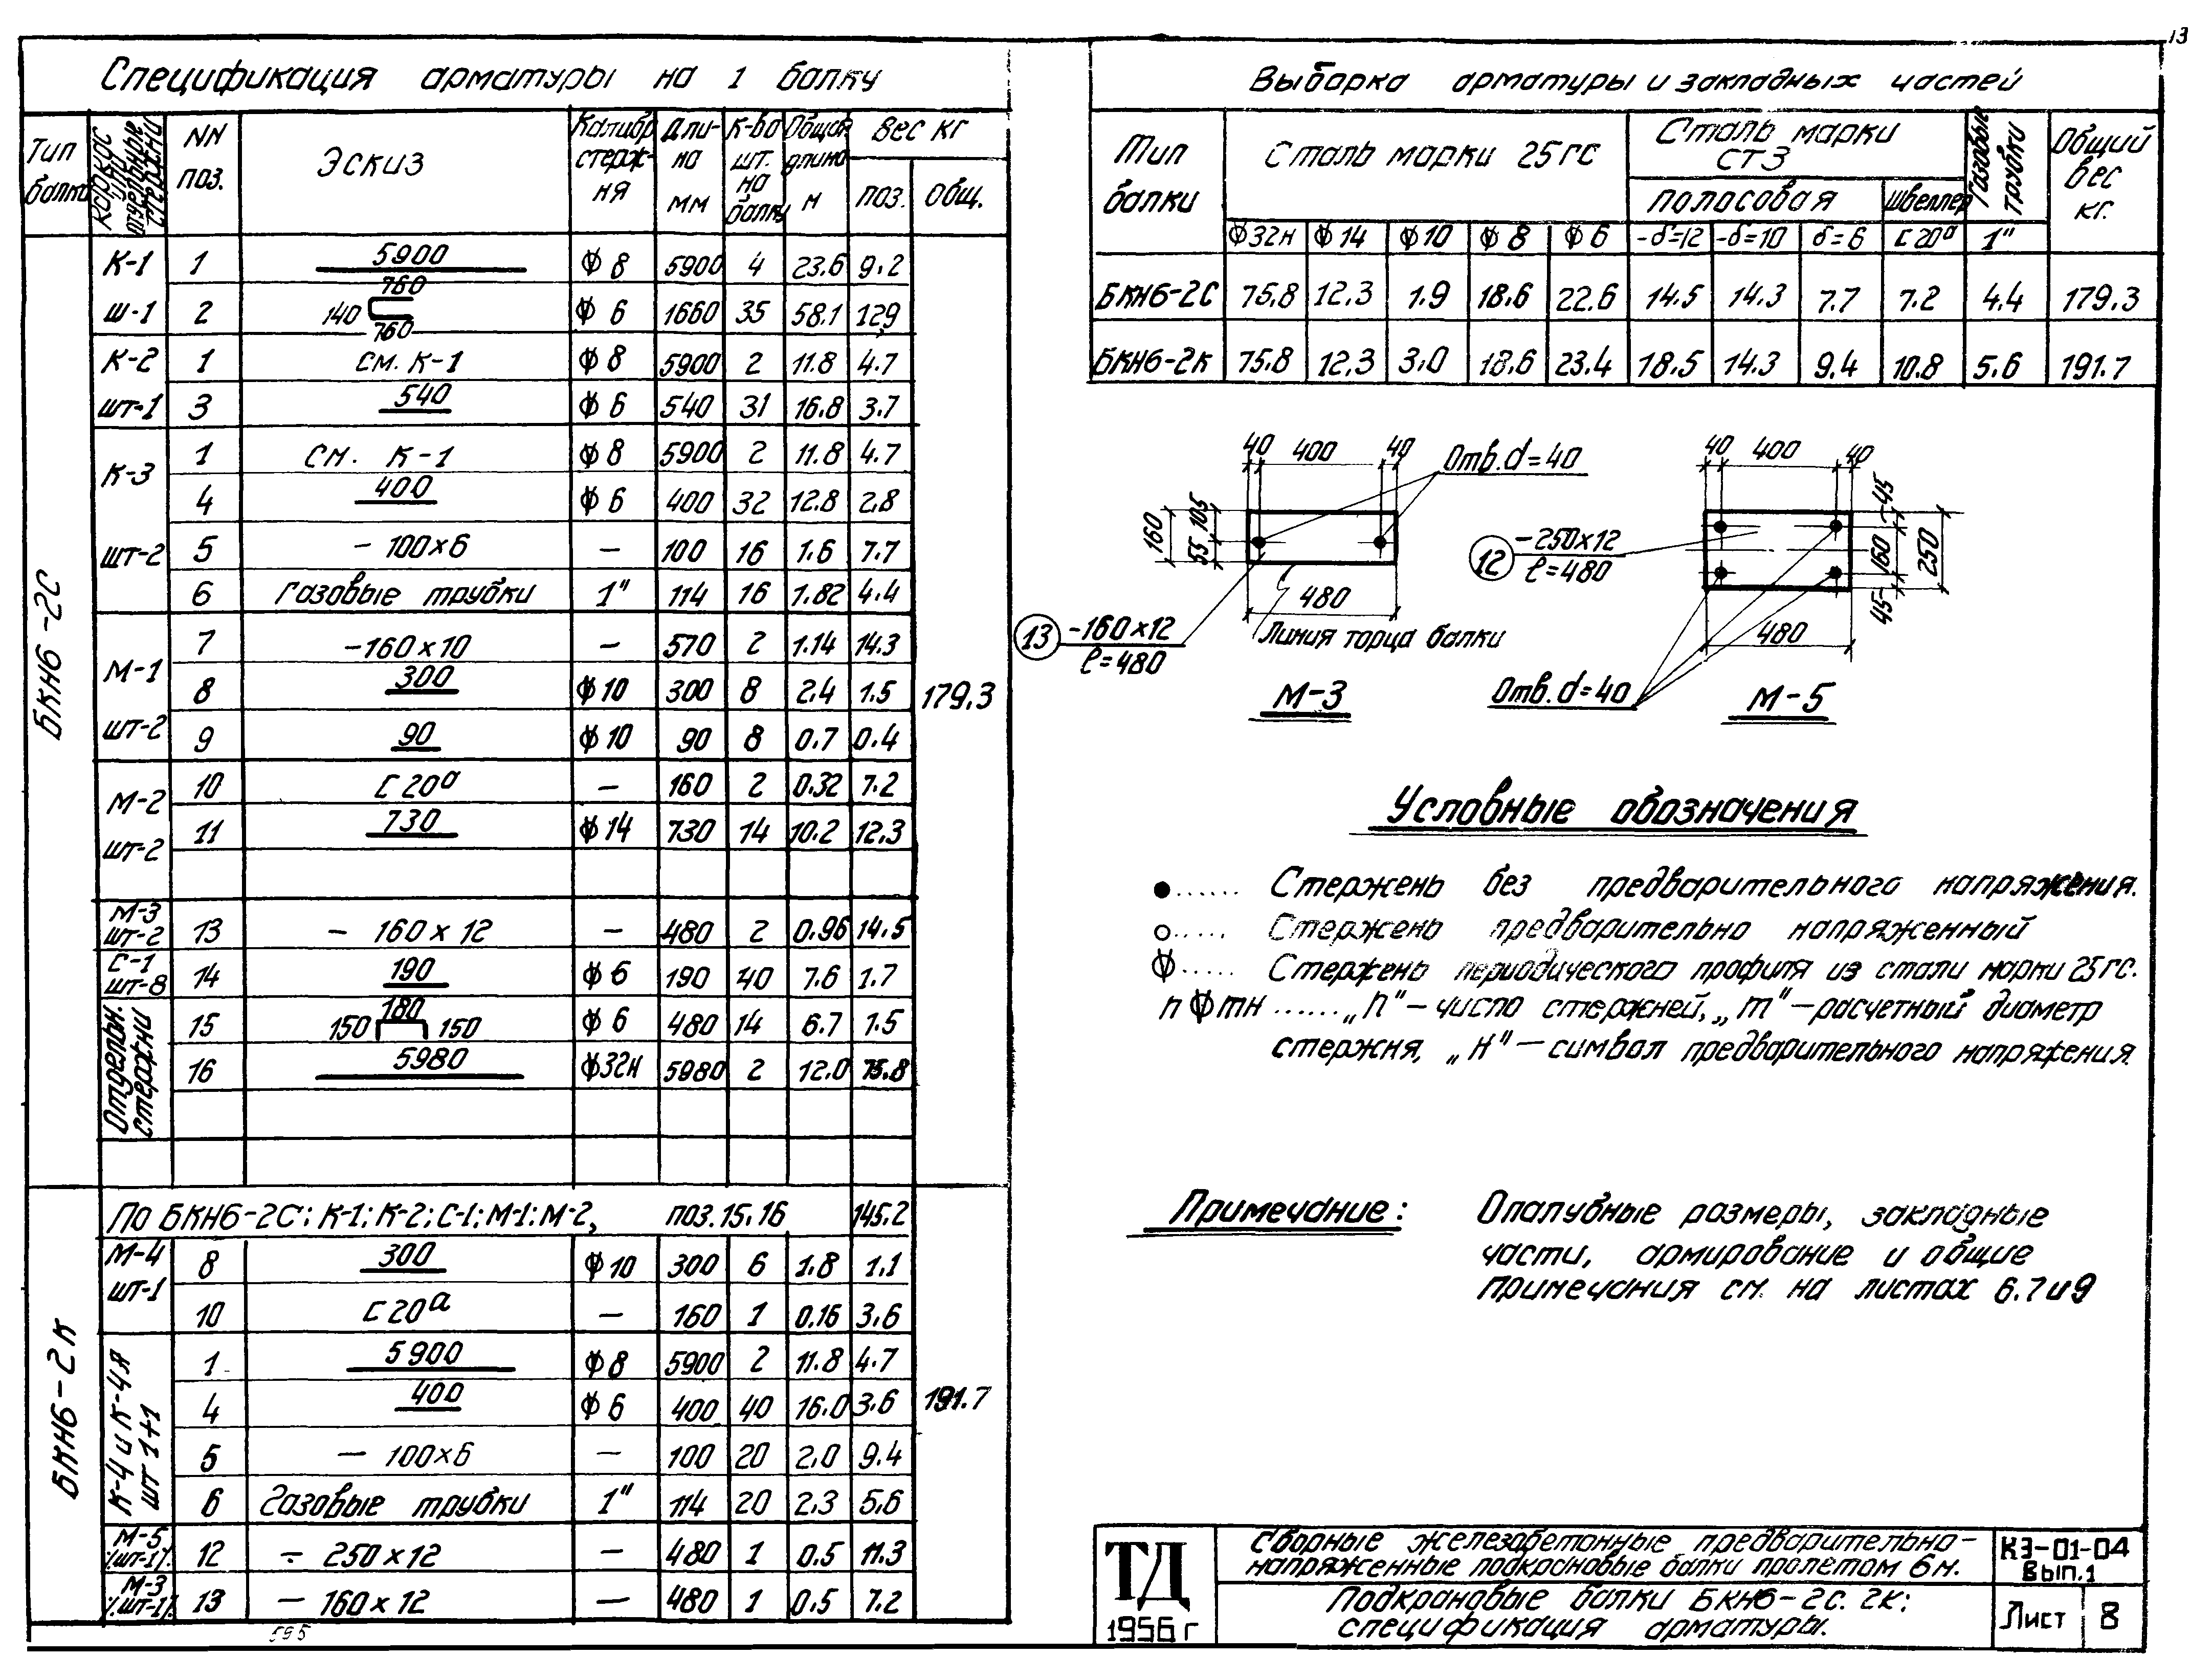 13
Спецификация арматуры на 1 балку
Тип балки | Каркас или отдельные стержни | NN поз. | Эскиз | Калибр стержня | Длина мм | К-во шт. на балку | Общая длина м | Вес кг поз. | общ.
БКН6-2С
К-1 | 1 | 5900 | ф 8 | 5900 | 4 | 23.6 | 9.2
Ш-1 | 2 | 140 760 760 | ф 6 | 1660 | 35 | 58.1 | 12,9
К-2 | 1 | см. К-1 | ф 8 | 5900 | 2 | 11.8 | 4.7
шт-1 | 3 | 540 | ф 6 | 540 | 31 | 16.8 | 3.7
К-3 | 1 | См. К-1 | ф 8 | 5900 | 2 | 11.8 | 4.7
4 | 400 | ф 6 | 400 | 32 | 12.8 | 2.8
шт-2 | 5 | - 100×6 | — | 100 | 16 | 1.6 | 7.7
6 | Газовые трубки | 1" | 114 | 16 | 1.82 | 4.4
М-1 | 7 | -160×10 | — | 570 | 2 | 1.14 | 14.3
8 | 300 | ф 10 | 300 | 8 | 2.4 | 1.5 | 179.3
шт-2 | 9 | 90 | ф 10 | 90 | 8 | 0.7 | 0.4
М-2 | 10 | С 20а | — | 160 | 2 | 0.32 | 7.2
шт-2 | 11 | 730 | ф 14 | 730 | 14 | 10.2 | 12.3
М-3 шт-2 | 13 | - 160 × 12 | — | 480 | 2 | 0.96 | 14.5
С-1 шт-8 | 14 | 190 | ф 6 | 190 | 40 | 7.6 | 1.7
Отдельн. стержни | 15 | 150 180 150 | ф 6 | 480 | 14 | 6.7 | 1.5
16 | 5980 | ф32н | 5980 | 2 | 12.0 | 75.8
БКН6-2К
По БКН6-2С: К-1; К-2; С-1; М-1; М-2, поз. 15.16 | 145.2
М-4 | 8 | 300 | ф 10 | 300 | 6 | 1.8 | 1.1
шт-1 | 10 | С 20а | — | 160 | 1 | 0.16 | 3.6
К-4 и К-4я шт 1+1 | 1 | 5900 | ф 8 | 5900 | 2 | 11.8 | 4.7
4 | 400 | ф 6 | 400 | 40 | 16.0 | 3.6 | 191.7
5 | — 100×6 | — | 100 | 20 | 2.0 | 9.4
6 | Газовые трубки | 1" | 114 | 20 | 2.3 | 5.6
М-5 (шт-1) | 12 | - 250×12 | — | 480 | 1 | 0.5 | 11.3
М-3 (шт-1) | 13 | - 160×12 | — | 480 | 1 | 0.5 | 7.2
595
Выборка арматуры и закладных частей
Тип балки | Сталь марки 25гс | Сталь марки СТ3 | Газовые трубки | Общий вес кг.
полосовая | швеллер
ф32н | ф 14 | ф 10 | ф 8 | ф 6 | -δ=12 | -δ=10 | δ=6 | С 20а | 1"
БКН6-2С | 75.8 | 12.3 | 1.9 | 18.6 | 22.6 | 14.5 | 14.3 | 7.7 | 7.2 | 4.4 | 179.3
БКН6-2К | 75.8 | 12.3 | 3.0 | 18.6 | 23.4 | 18.5 | 14.3 | 9.4 | 10.8 | 5.6 | 191.7
40 400 40
Отв. d=40
160
55 105
480
13 -160×12
ℓ=480
Линия торца балки
М-3
40 400 40
12 -250×12
ℓ=480
45 160 45
250
480
Отв. d=40
М-5
Условные обозначения
●...... Стержень без предварительного напряжения.
○..... Стержень предварительно напряженный
ф..... Стержень периодического профиля из стали марки 25гс.
п ф тн ...... „п" — число стержней, „т" — расчетный диаметр
стержня, „н" — символ предварительного напряжения.
Примечание: Опалубные размеры, закладные
части, армирование и общие
примечания см. на листах 6.7 и 9
ТД
1956 г
Сборные железобетонные предварительно-
напряженные подкрановые балки пролетом 6м.
КЭ-01-04
Вып.1
Подкрановые балки БКН6-2с. 2к;
спецификация арматуры.
Лист 8